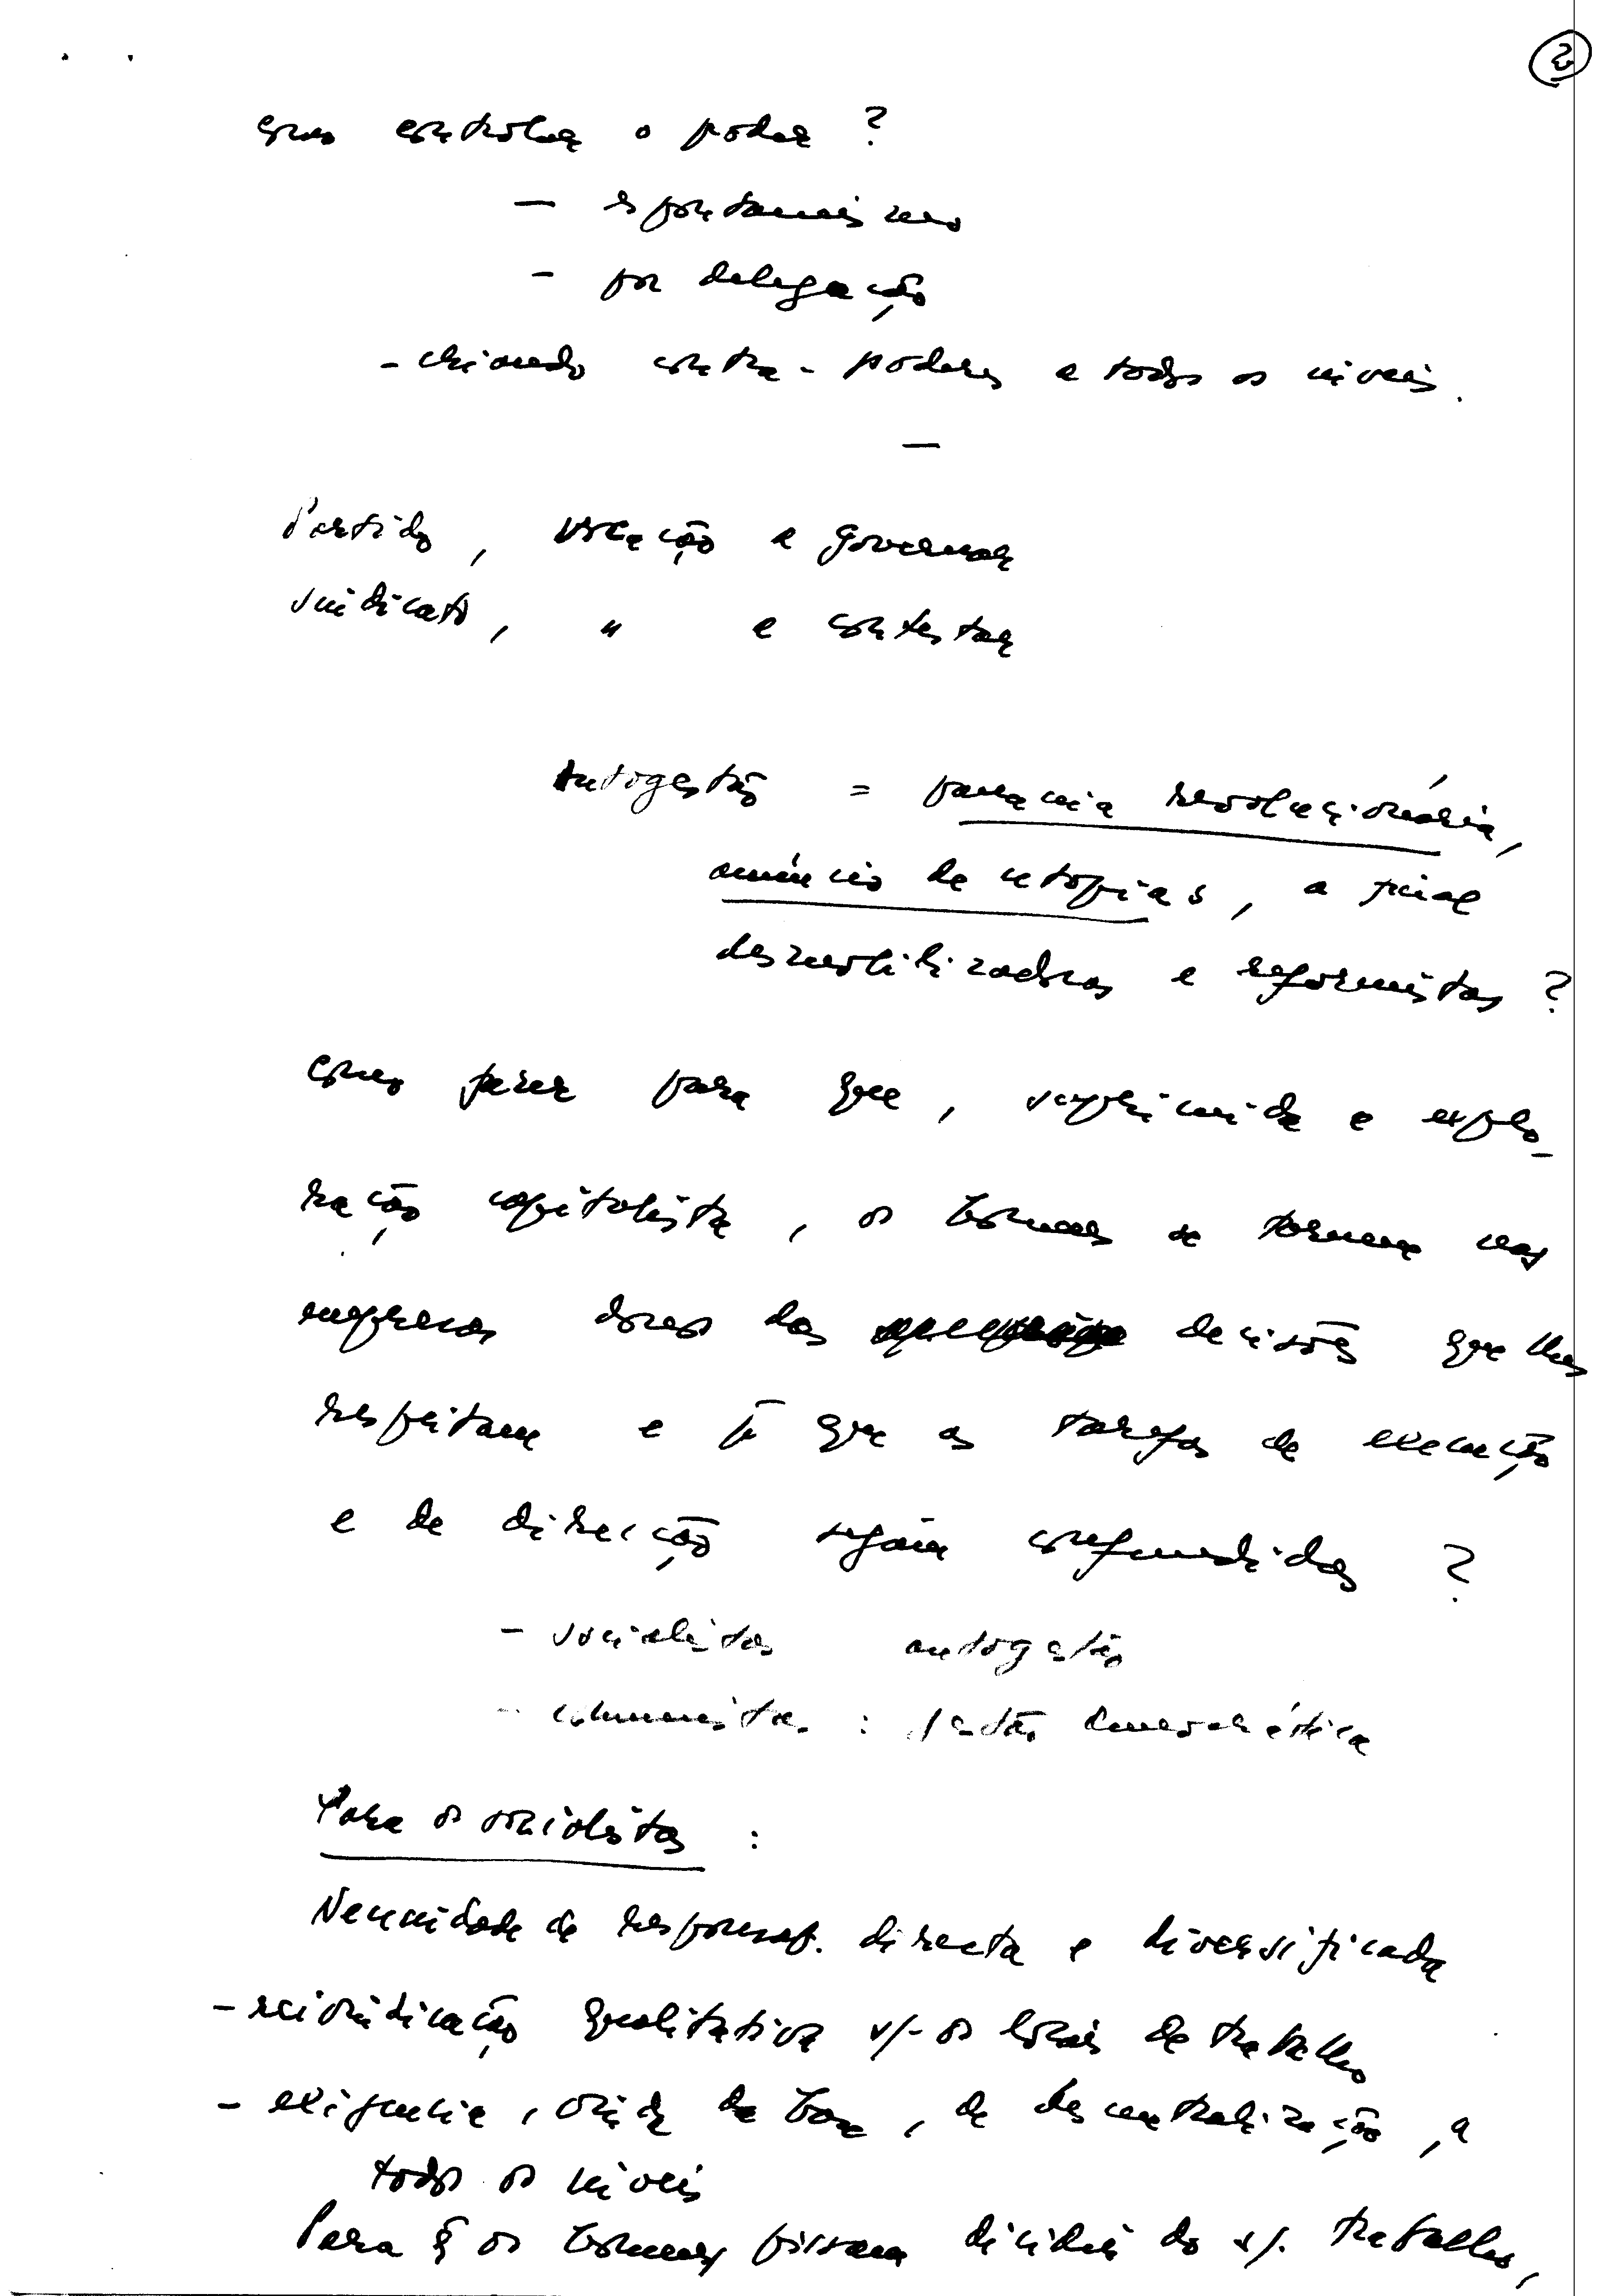 2
como controlar o poder ?
— espontaneísmo
- por delegação
- criando contra-poderes a todos os níveis.
—
Partido, vocação a governar
sindicato, " a contestar
Autogestão = revolucionária,
anúncio de utopias, a final
desmobilizadoras e reformistas ?
como fazer para que, suprimida a explo-
ração capitalista, os homens se tornem nas
empresas donos das decisões que lhes
respeitam e p. que as tarefas de execução
e de direcção sejam confundidas ?
- socialistas autogestão
- comunistas : gestão democrática
Para os socialistas :
Necessidade de responsab. directa e diversificada
- reivindicação qualitativa s/- os locais de trabalho
- exigência, vinda da base, de descentralização, a
todos os níveis
Para q os homens possam decidir do s/. trabalho,